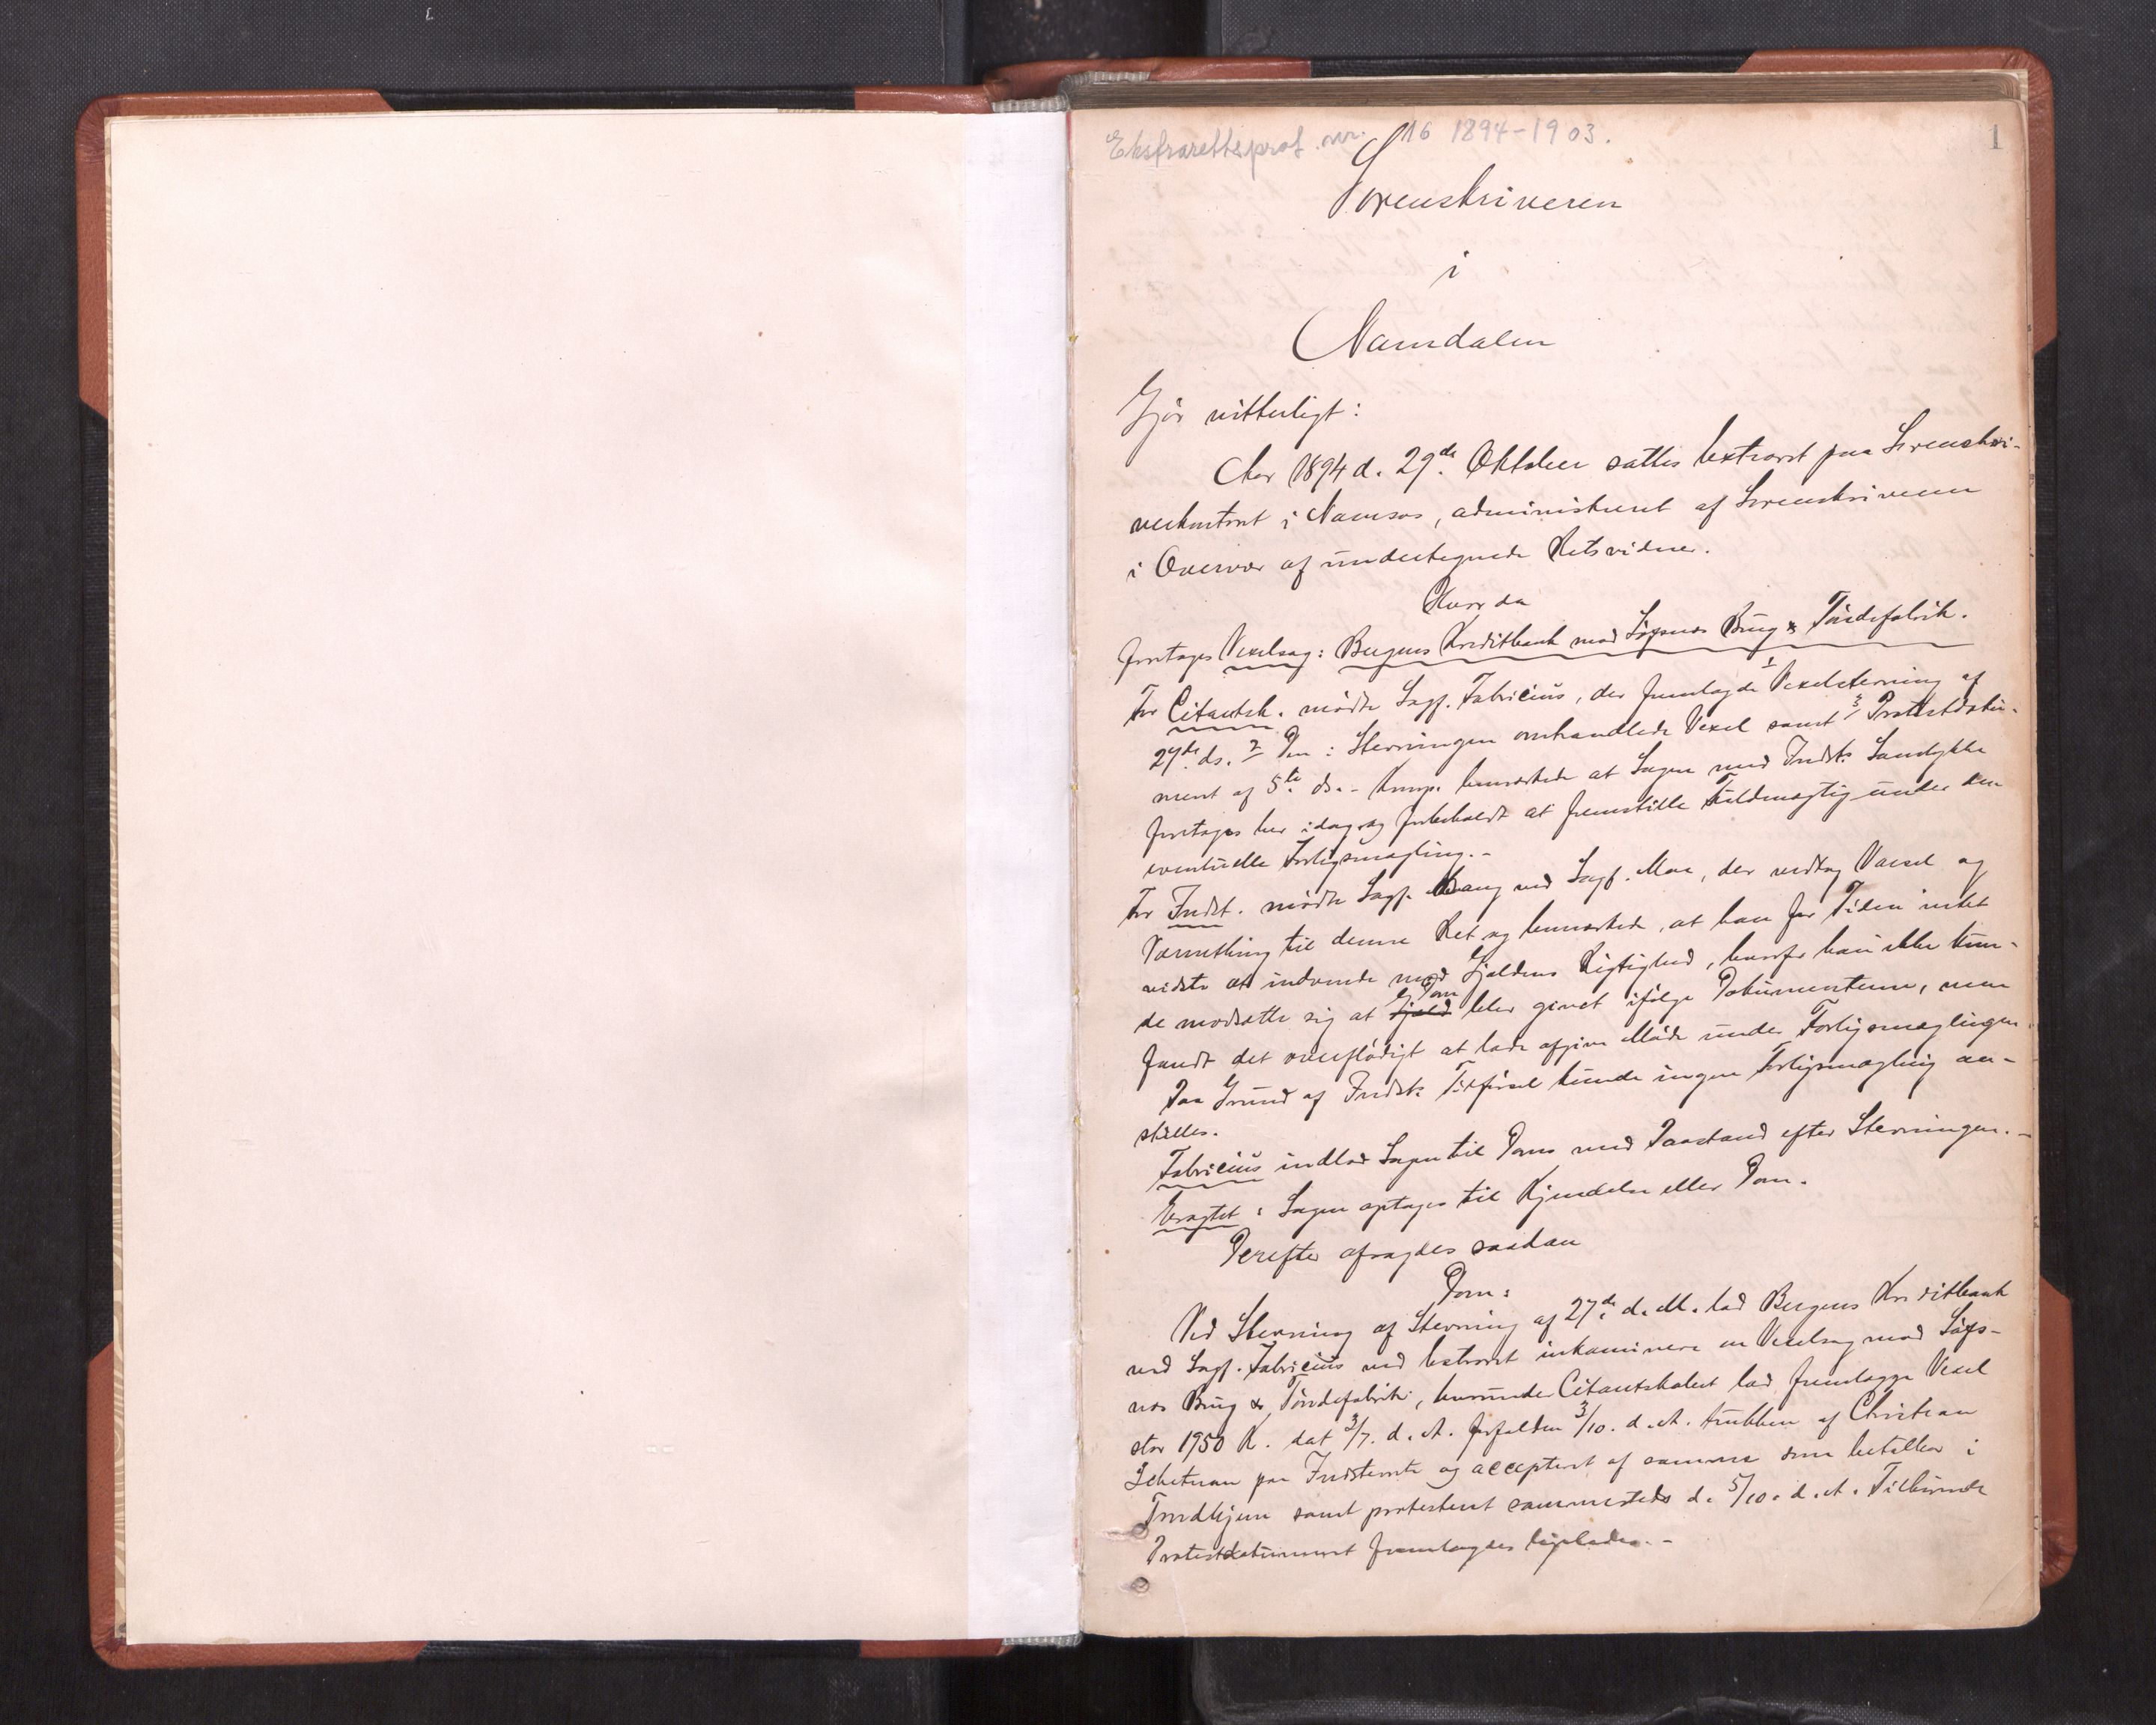 Ekstrarettsprot. nr. 16 1894-1903.
1
Sorenskriveren
i
Namdalen
Gjør vitterligt:
Aar 1894 d. 29de Oktober sattes Extraret paa Sorenskri-
verkontoret i Namsos, administreret af Sorenskriveren
i Overvær af undertegnede Retsvidner.
Hvorda
foretoges Vexelsag: Bergens Kreditbank mod Søgnes Brug & Tøndefabrik.
For Citantsk. mødte Sagf. Fabricius, der fremlagde 1 Vexelstevning af
27de ds. 2 Den i Stevningen omhandlede Vexel samt 3 Protestdoku-
ment af 5te ds. - Komp. bemærkede at Sagen med Indst. Samtykke
foretages her idag og forbeholdt at fremstille Fuldmægtig under den
eventuelle Forligsmægling. -
For Indst. mødte Sagf. Bang ved Sagf. Moe, der vedtog Varsel og
Værnething til denne Ret og bemærkede, at han for Tiden intet
vidste at indvende mod Gjældens Rigtighed, hvorfor han ikke kun-
de modsætte sig at Gjæld Dom blev givet ifølge Dokumenterne, men
fandt det overflødigt at lade afgive Møde under Forligsmæglingen.
Paa Grund af Indst. Tilførsel kunde ingen Forligsmægling an-
stilles.
Fabricius indlod Sagen til Doms med Paastand efter Stevningen. -
Eragtet: Sagen optages til Kjendelse eller Dom.
Derefter afsagdes saadan
Dom:
Ved Stevning af Stevning af 27de d. M. lod Bergens Kreditbank
ved Sagf. Fabricius ved Extraret inkaminere en Vexelsag mod Søgs-
nes Brug & Tøndefabrik, hvorunder Citantskabet lod fremlægge Vexel
stor 1950 K. dat 3/7. d. A. forfalden 3/10. d. A. trukken af Christian
paa Indstevnte og accepteret af samme som betalbar i
Trondhjem samt protesteret sammesteds d. 5/10. d. A. Tilhørende
Protestdokument fremlagdes ligeledes. -